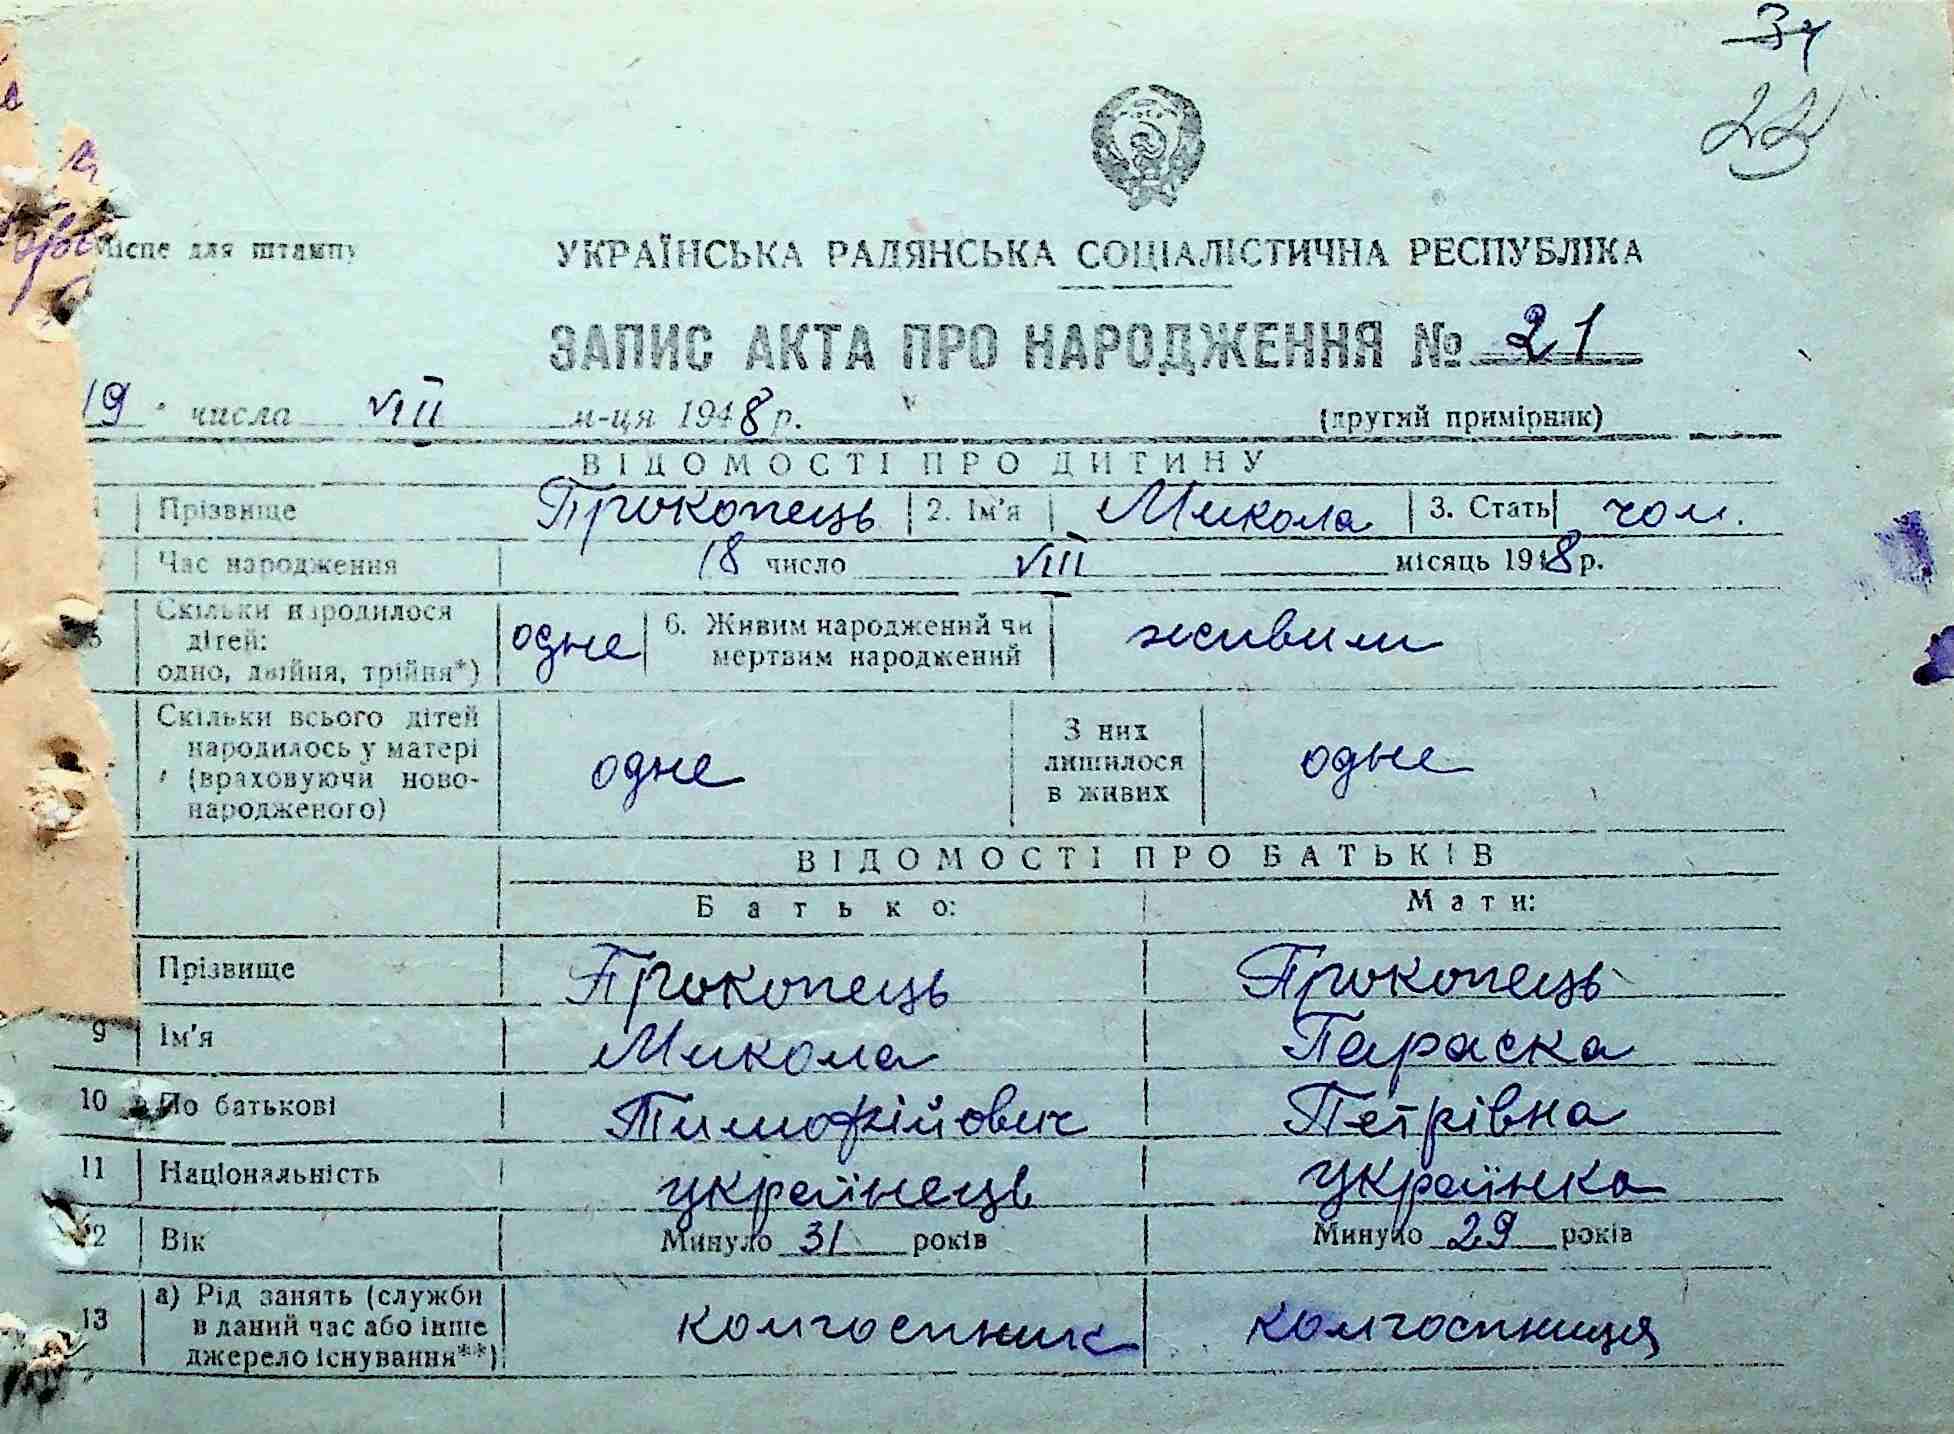 34
22
Місце для штампу
УКРАЇНСЬКА РАДЯНСЬКА СОЦІАЛІСТИЧНА РЕСПУБЛІКА
ЗАПИС АКТА ПРО НАРОДЖЕННЯ № 21
19 числа VIII м-ця 1948 р.
(другий примірник)
ВІДОМОСТІ ПРО ДИТИНУ
Прізвище Прокопець 2. Ім'я Микола 3. Стать чол.
Час народження 18 число VIII місяць 1948 р.
Скільки народилося дітей: одно, двійня, трійня*) одне 6. Живим народжений чи мертвим народжений живим
Скільки всього дітей народилось у матері (враховуючи ново-народженого) одне З них лишилося в живих одне
ВІДОМОСТІ ПРО БАТЬКІВ
Батько: Мати:
Прізвище Прокопець Прокопець
9 Ім'я Микола Параска
10 По батькові Тимофійович Петрівна
11 Національність українець українка
12 Вік Минуло 31 років Минуло 29 років
13 а) Рід занять (служби в даний час або інше джерело існування**) колгоспник колгоспниця